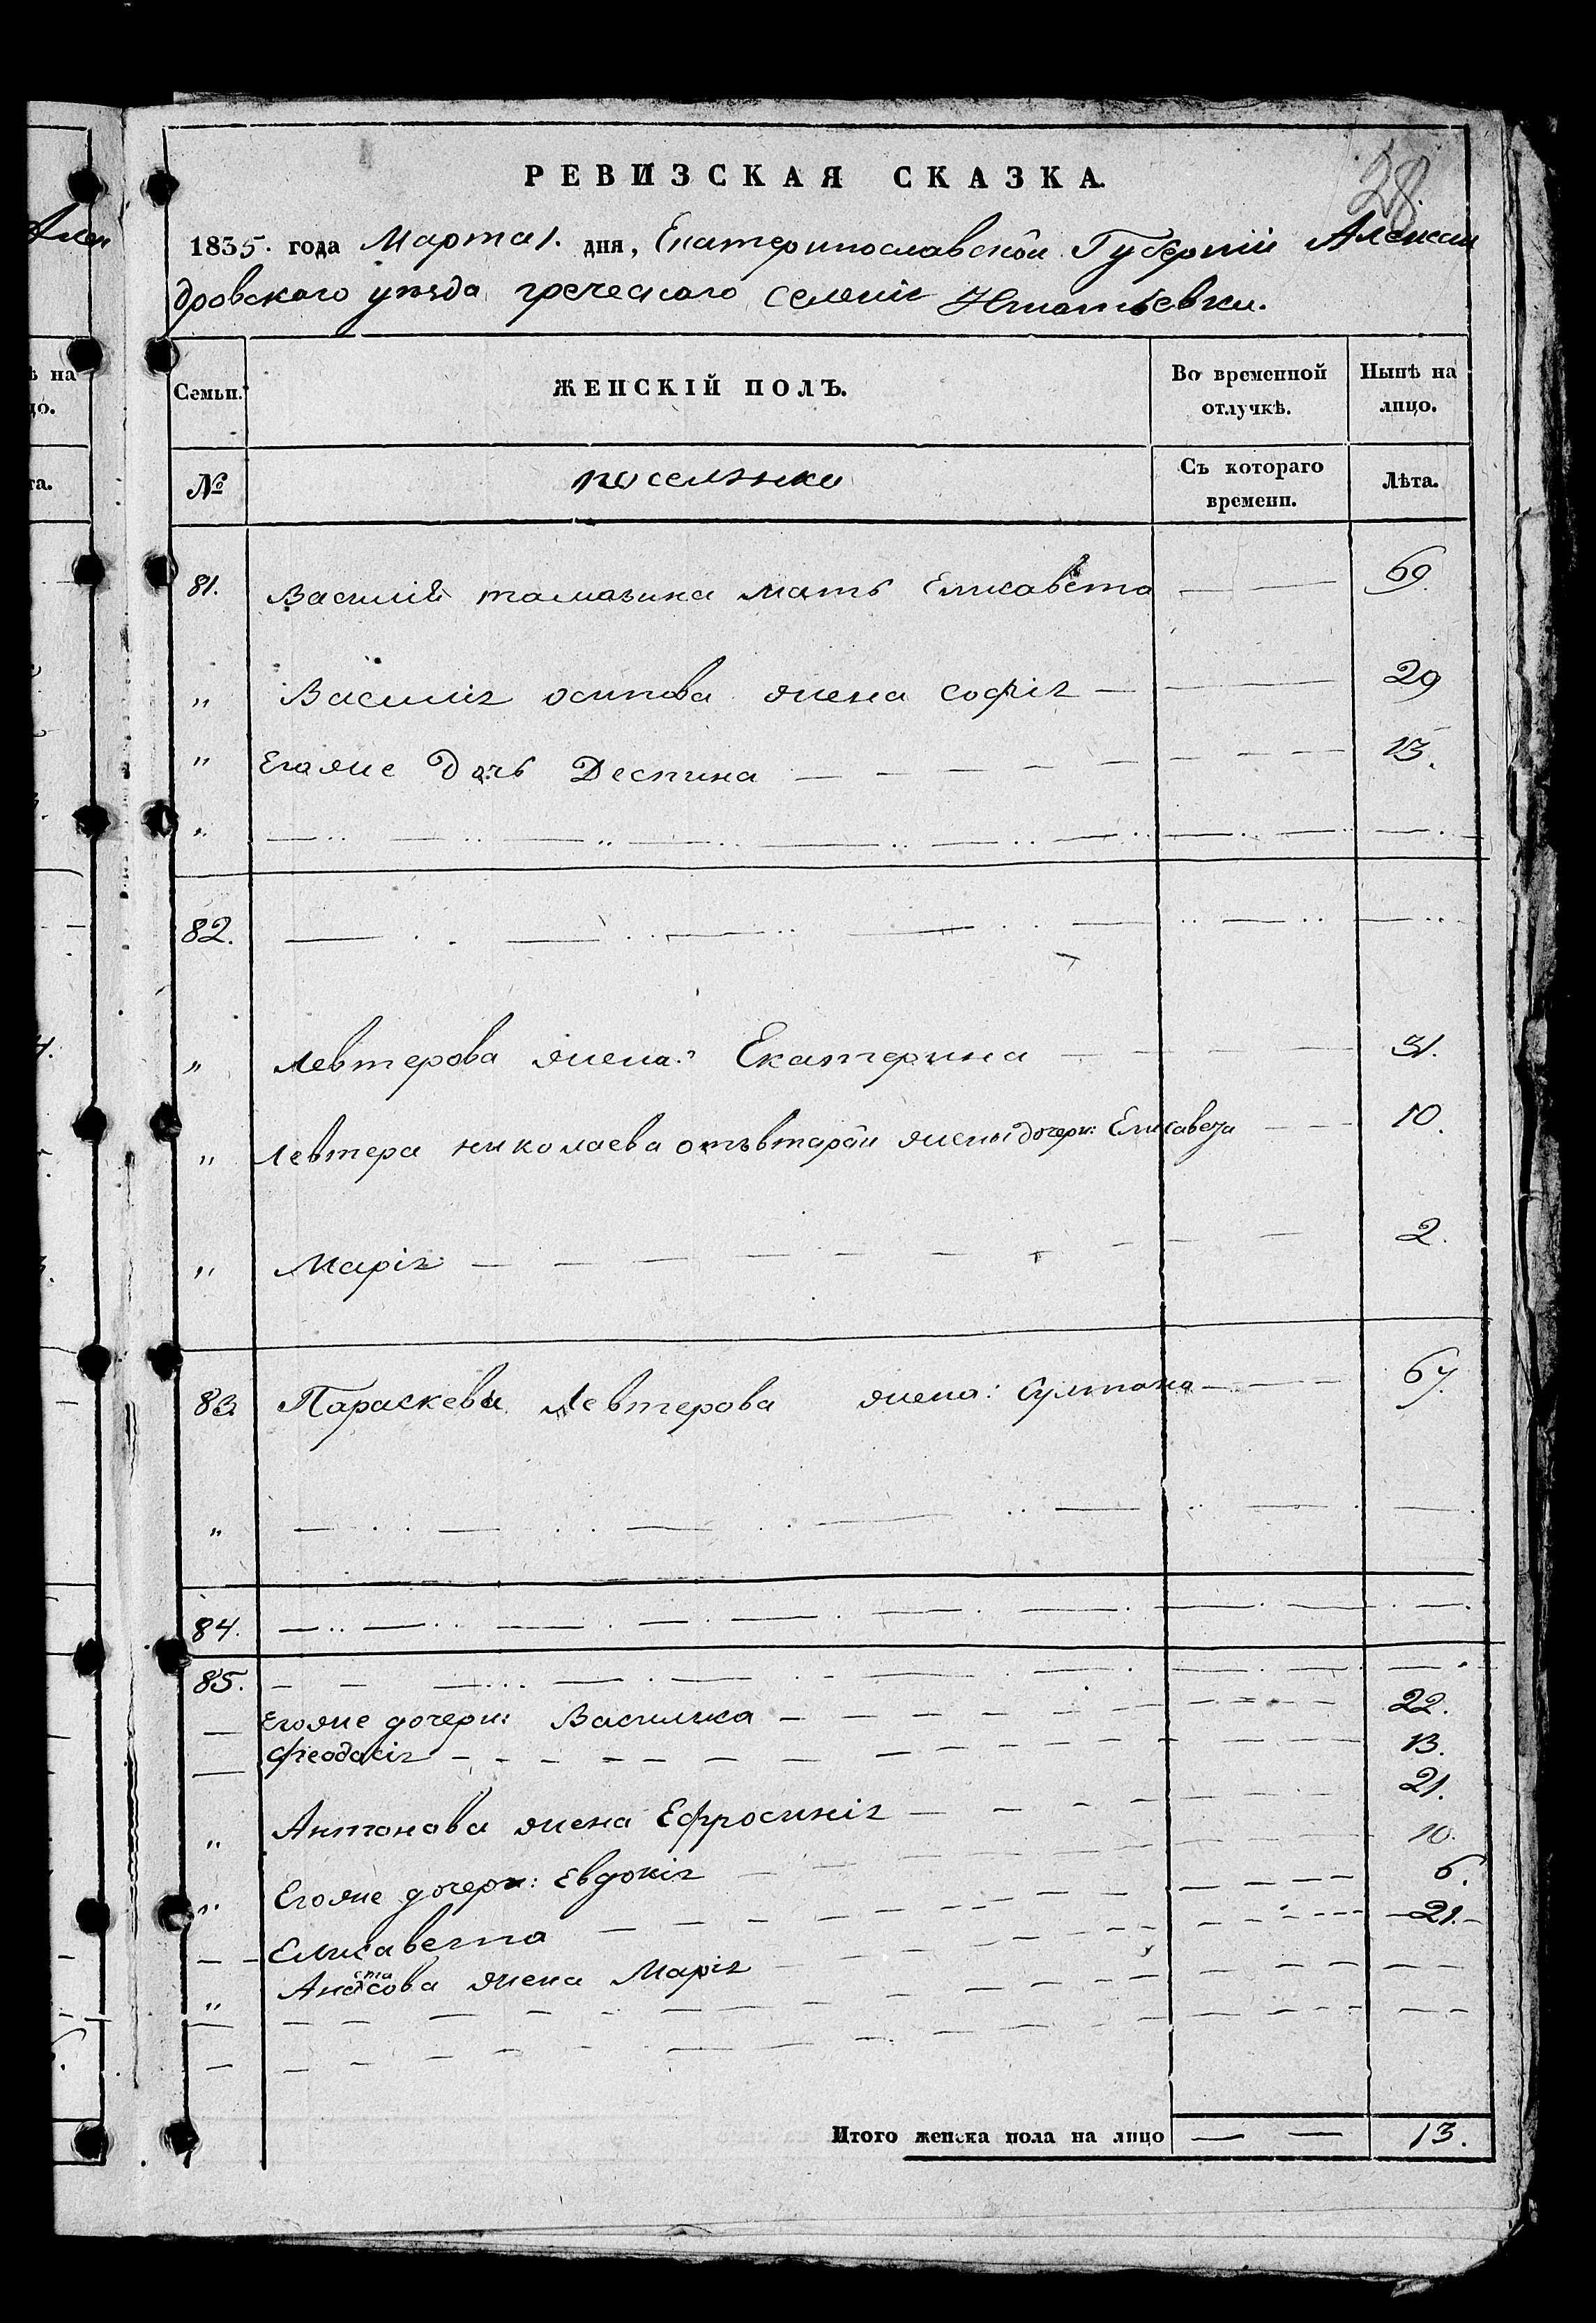 28.
РЕВИЗСКАЯ СКАЗКА.
1835. года Марта 1. дня, Екатеринославской Губерніи Алексан
дровского уѣзда греческого селенія Игнатьевки.
Семьи. ЖЕНСКІЙ ПОЛЪ. Во временной отлучкѣ. Нынѣ на лицо.
№ поселянко Съ котораго времени. Лѣта.
81. Василій мать Елисавета — — 69.
„ Василія осипова жена софія — — — 29
„ Егояже дочь Деспина — — — — — — — — 13.
„ — — — — — — — — — —
82. — — — — — — — —
„ Левтерова жена: Екатерина — — — — 31.
„ Левтера николаева отъвтарой жены дочери: Елисавета — — 10.
„ Марія — — — — — — — — — — 2.
83. Параскева Левтерова жена: Султана — — — 67.
„ — — — — — — — —
84. — — — — — — — — — — —
85. — — — — — — — — — —
— Егоже дочери: Василика — — — — — — — — — 22.
— Феодосія — — — — — — — — — — — 13.
„ Антонова жена Ефросинія — — — — — — — 21.
„ Егояже дочери: Евдокія — — — — — — — 10.
— Елисавета — — — — — — — — — — 6.
„ Анастасова жена Марія — — — — — — — 21.
— — — — — — — — — — —
— — — — — — — — — — —
Итого женска пола на лицо — — 13.